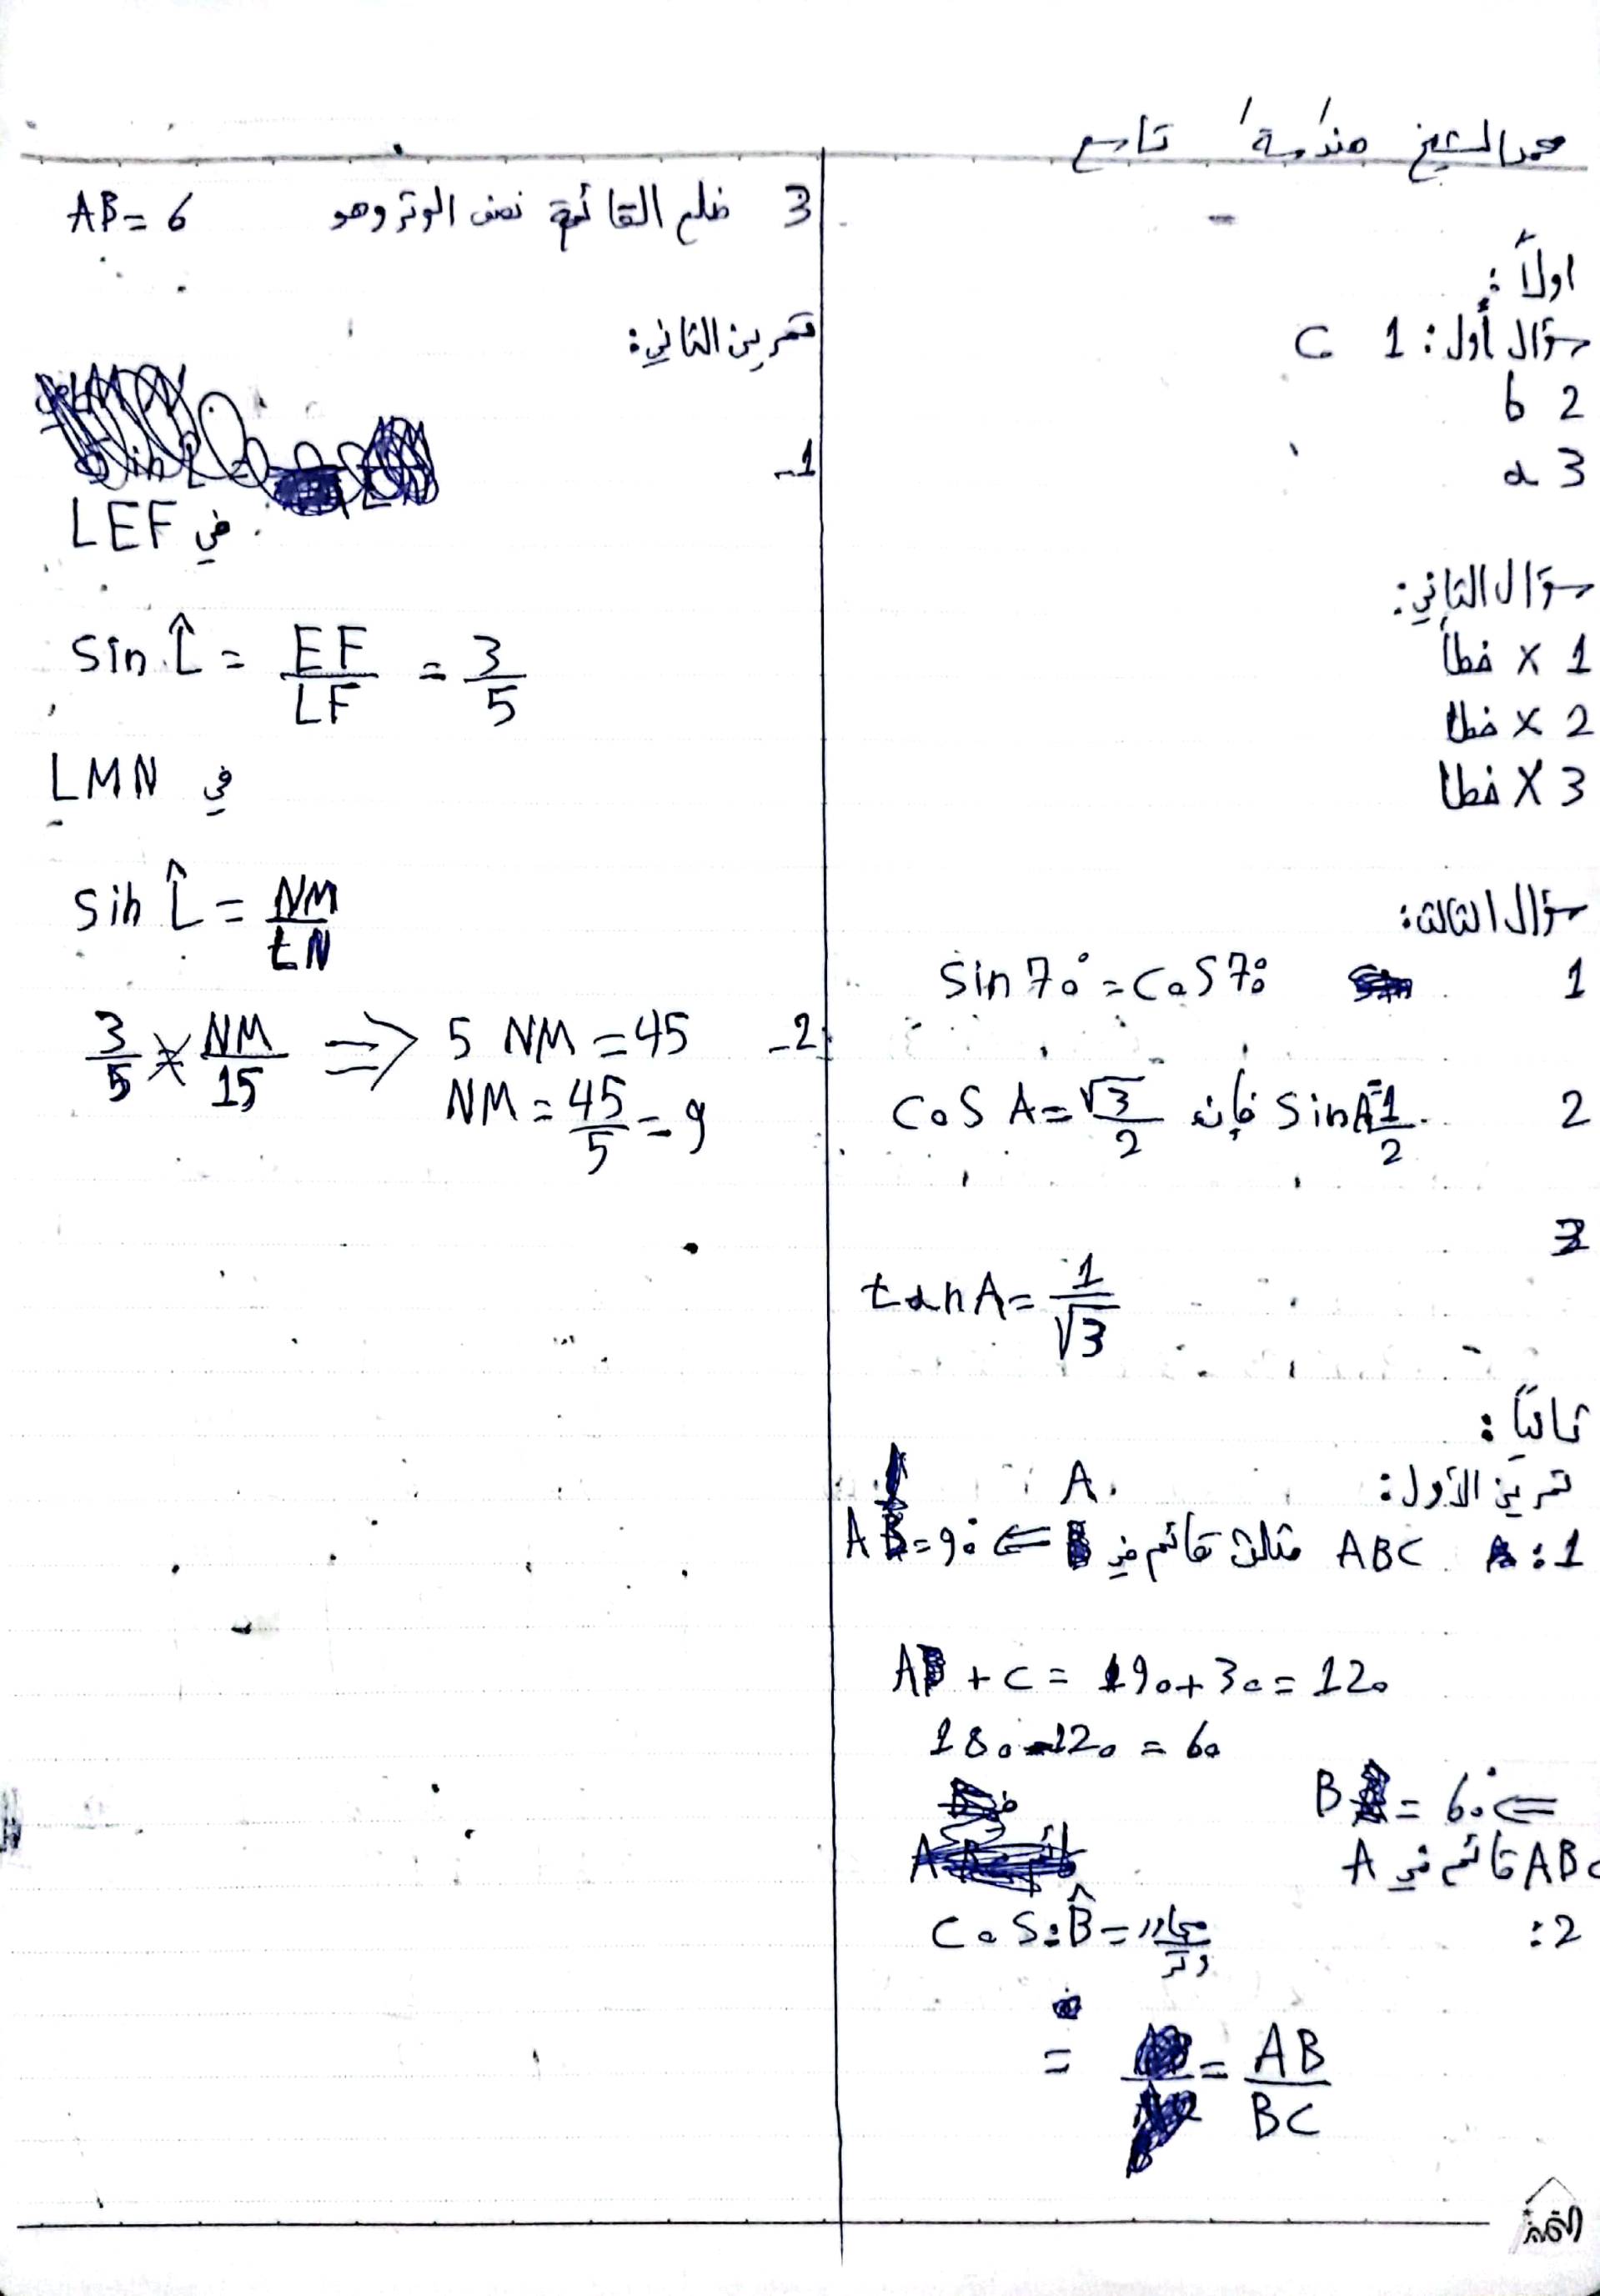 محمد الشيخ هندسة تاسع
اولاً:
سؤال أول: 1 C
2 b
3 a
سؤال الثاني:
1 X خطأ
2 X خطا
3 X خطا
سؤال الثالث:
1 sin 70° = cos 70
2 cos A = √3/2 فإنه sin A = 1/2
3
tan A = 1/√3
ثانياً:
تمرين الأول:
A
1: ABC مثلث قائم في ⇐ A = 90
A + C = 90 + 30 = 120
180 - 120 = 60
⇐ B = 60°
ABC قائم في A
2: cos B̂ = مجاور/وتر
= AB/BC
3 ضلع القائمة نصف الوتر وهو AB = 6
تمرين الثاني:
1-
في LEF
sin L̂ = EF/LF = 3/5
في LMN
sin L̂ = NM/LN
2- 3/5 = NM/15 ⇒ 5 NM = 45
NM = 45/5 = 9